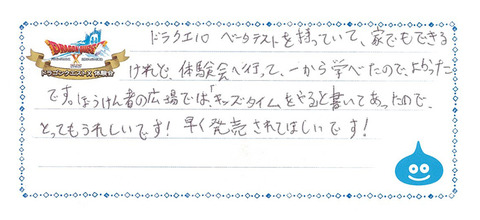 DRAGON QUEST X
ドラゴンクエストX 体験会
ドラクエ10 ベータテストを持っていて、家でもできる
けれど、体験会へ行って、一から学べたので、よかった
です。ぼうけん者の広場では「キッズタイム」をやると書いてあったので、
とってもうれしいです! 早く発売されてほしいです!